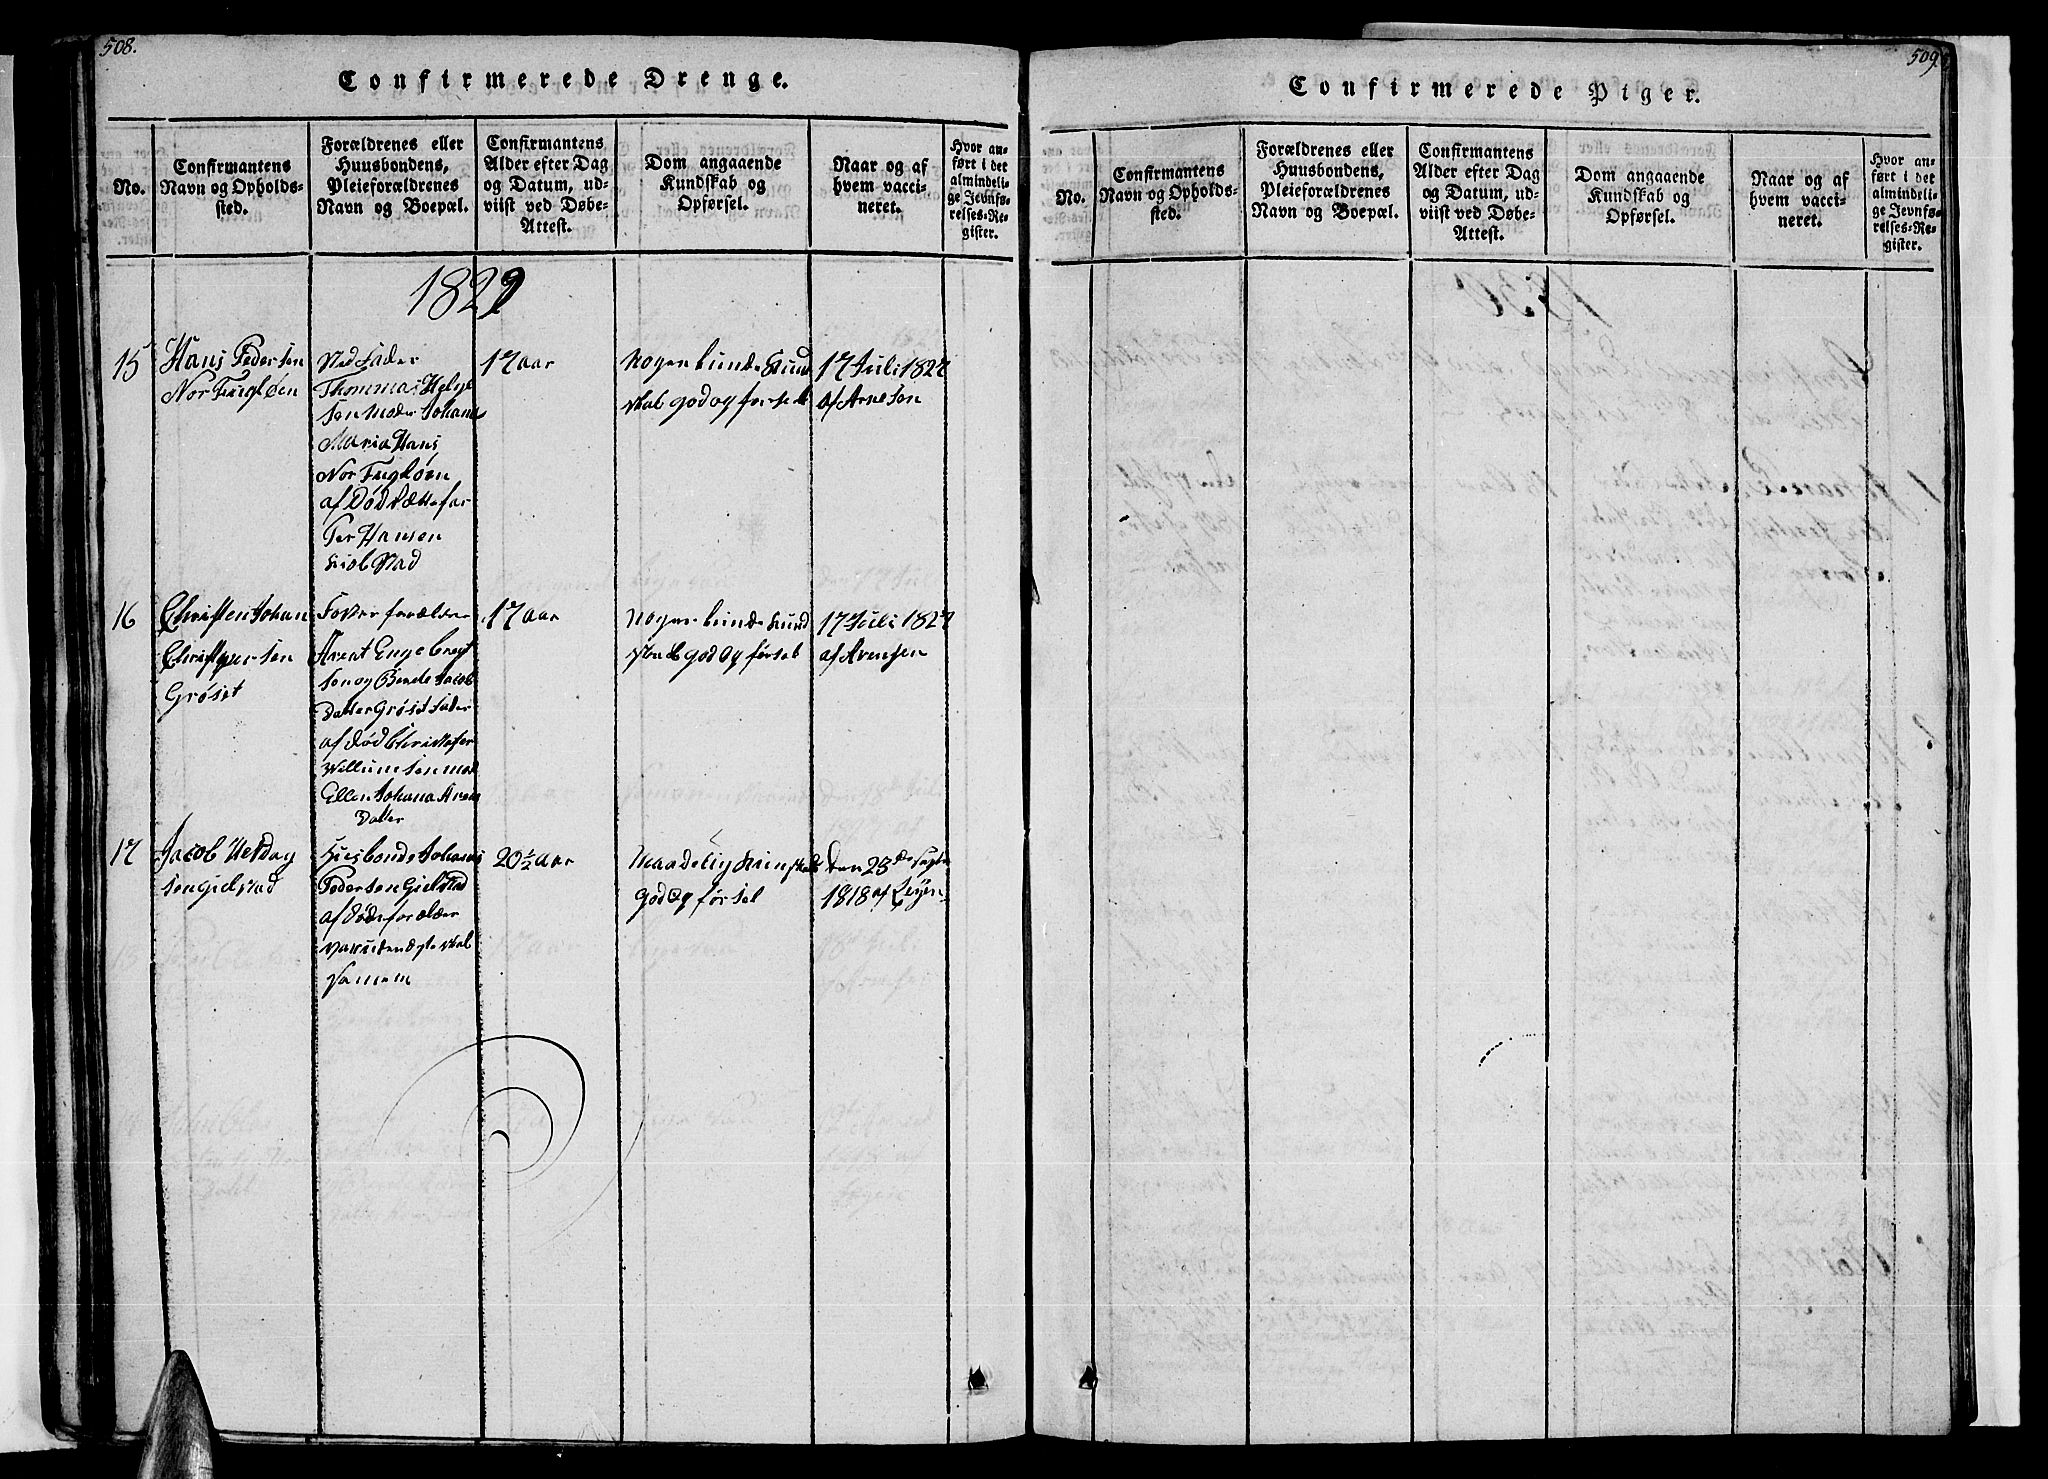 508.
Confirmerede Drenge.
No.
Confirmantens
Navn og Opholds-
sted.
Forældrenes eller
Huusbondens,
Pleieforældrenes
Navn og Boepæl.
Confirmantens
Alder efter Dag
og Datum, ud-
viist ved Døbe-
Attest.
Dom angaaende
Kundskab og
Opførsel.
Naar og af
hvem vacci-
neret.
Hvor an-
ført i det
almindeli-
ge Jevnfø-
relses-Re-
gister.
1829
15
Hans Peder sen
Nor Fugløen
Sted fader
Thommas Helge
sen moder Johana
Maria Hans
Nor Fugløen
af Død
Per Hansen
17 aar
Nogenlunde Kund
skab god og førsel
17 Juli 1827
af Arnesen
16
Christen Johan
Christopher sen
Grøset
Foster forælder
Arent Enge bregt
sen og Bende Jacob
Datter Grøset fader
af død Christofer
Willumsen mod
Ellen Johana Aren
Datter
17 aar
Nogenlunde Kund
skab god og førsel
17 Juli 1827
af Arensen
17
Jacob
sen Gielstad
Huusbonde Johanes
Pedersen Gielstad
af Døde forælder
20 1/2 aar
Maadelig Kunskab
god og førsel
den 28de Septbr
1818 af
509
Confirmerede Piger.
No.
Confirmantens
Navn og Opholds-
sted.
Forældrenes eller
Huusbondens,
Pleieforældrenes
Navn og Boepæl.
Confirmantens
Alder efter Dag
og Datum, ud-
viist ved Døbe-
Attest.
Dom angaaende
Kundskab og
Opførsel.
Naar og af
hvem vacci-
neret.
Hvor an-
ført i det
almindeli-
ge Jevnfø-
relses-Re-
gister.